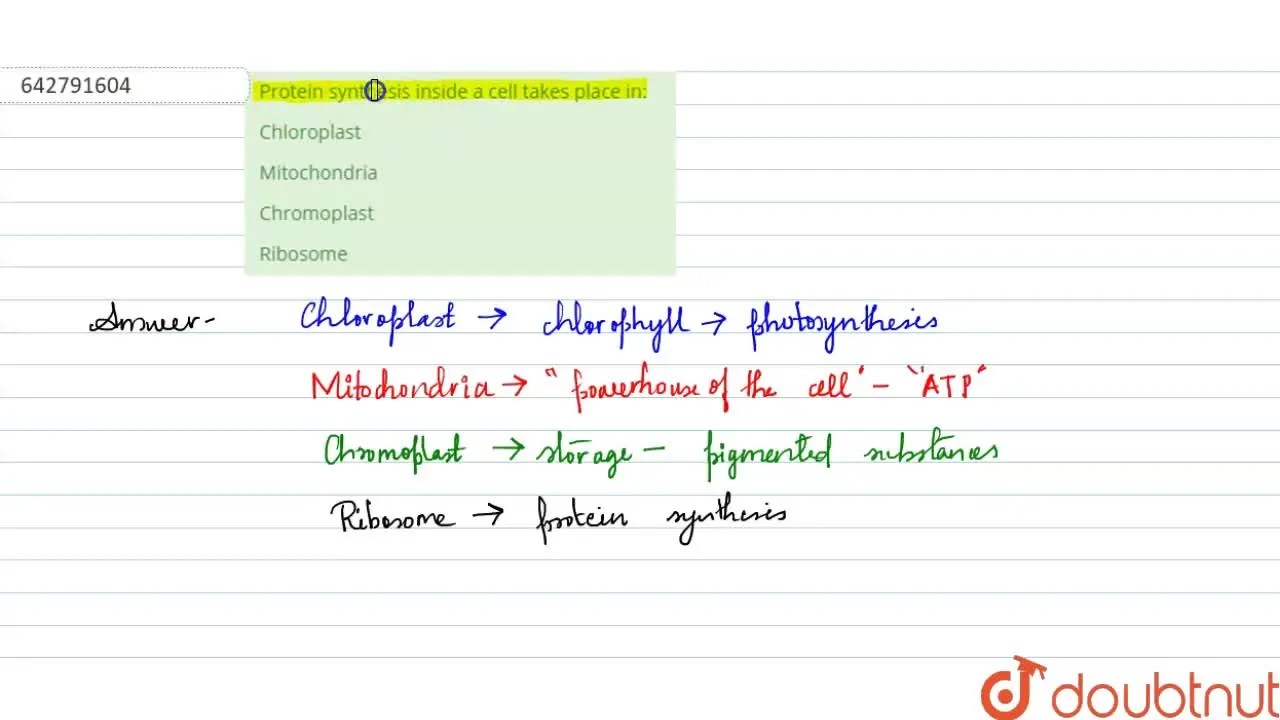 642791604
Protein synthesis inside a cell takes place in:
Chloroplast
Mitochondria
Chromoplast
Ribosome
Answer- Chloroplast → chlorophyll → photosynthesis
Mitochondria → "powerhouse of the cell" - "ATP"
Chromoplast → storage - pigmented substances
Ribosome → protein synthesis
doubtnut